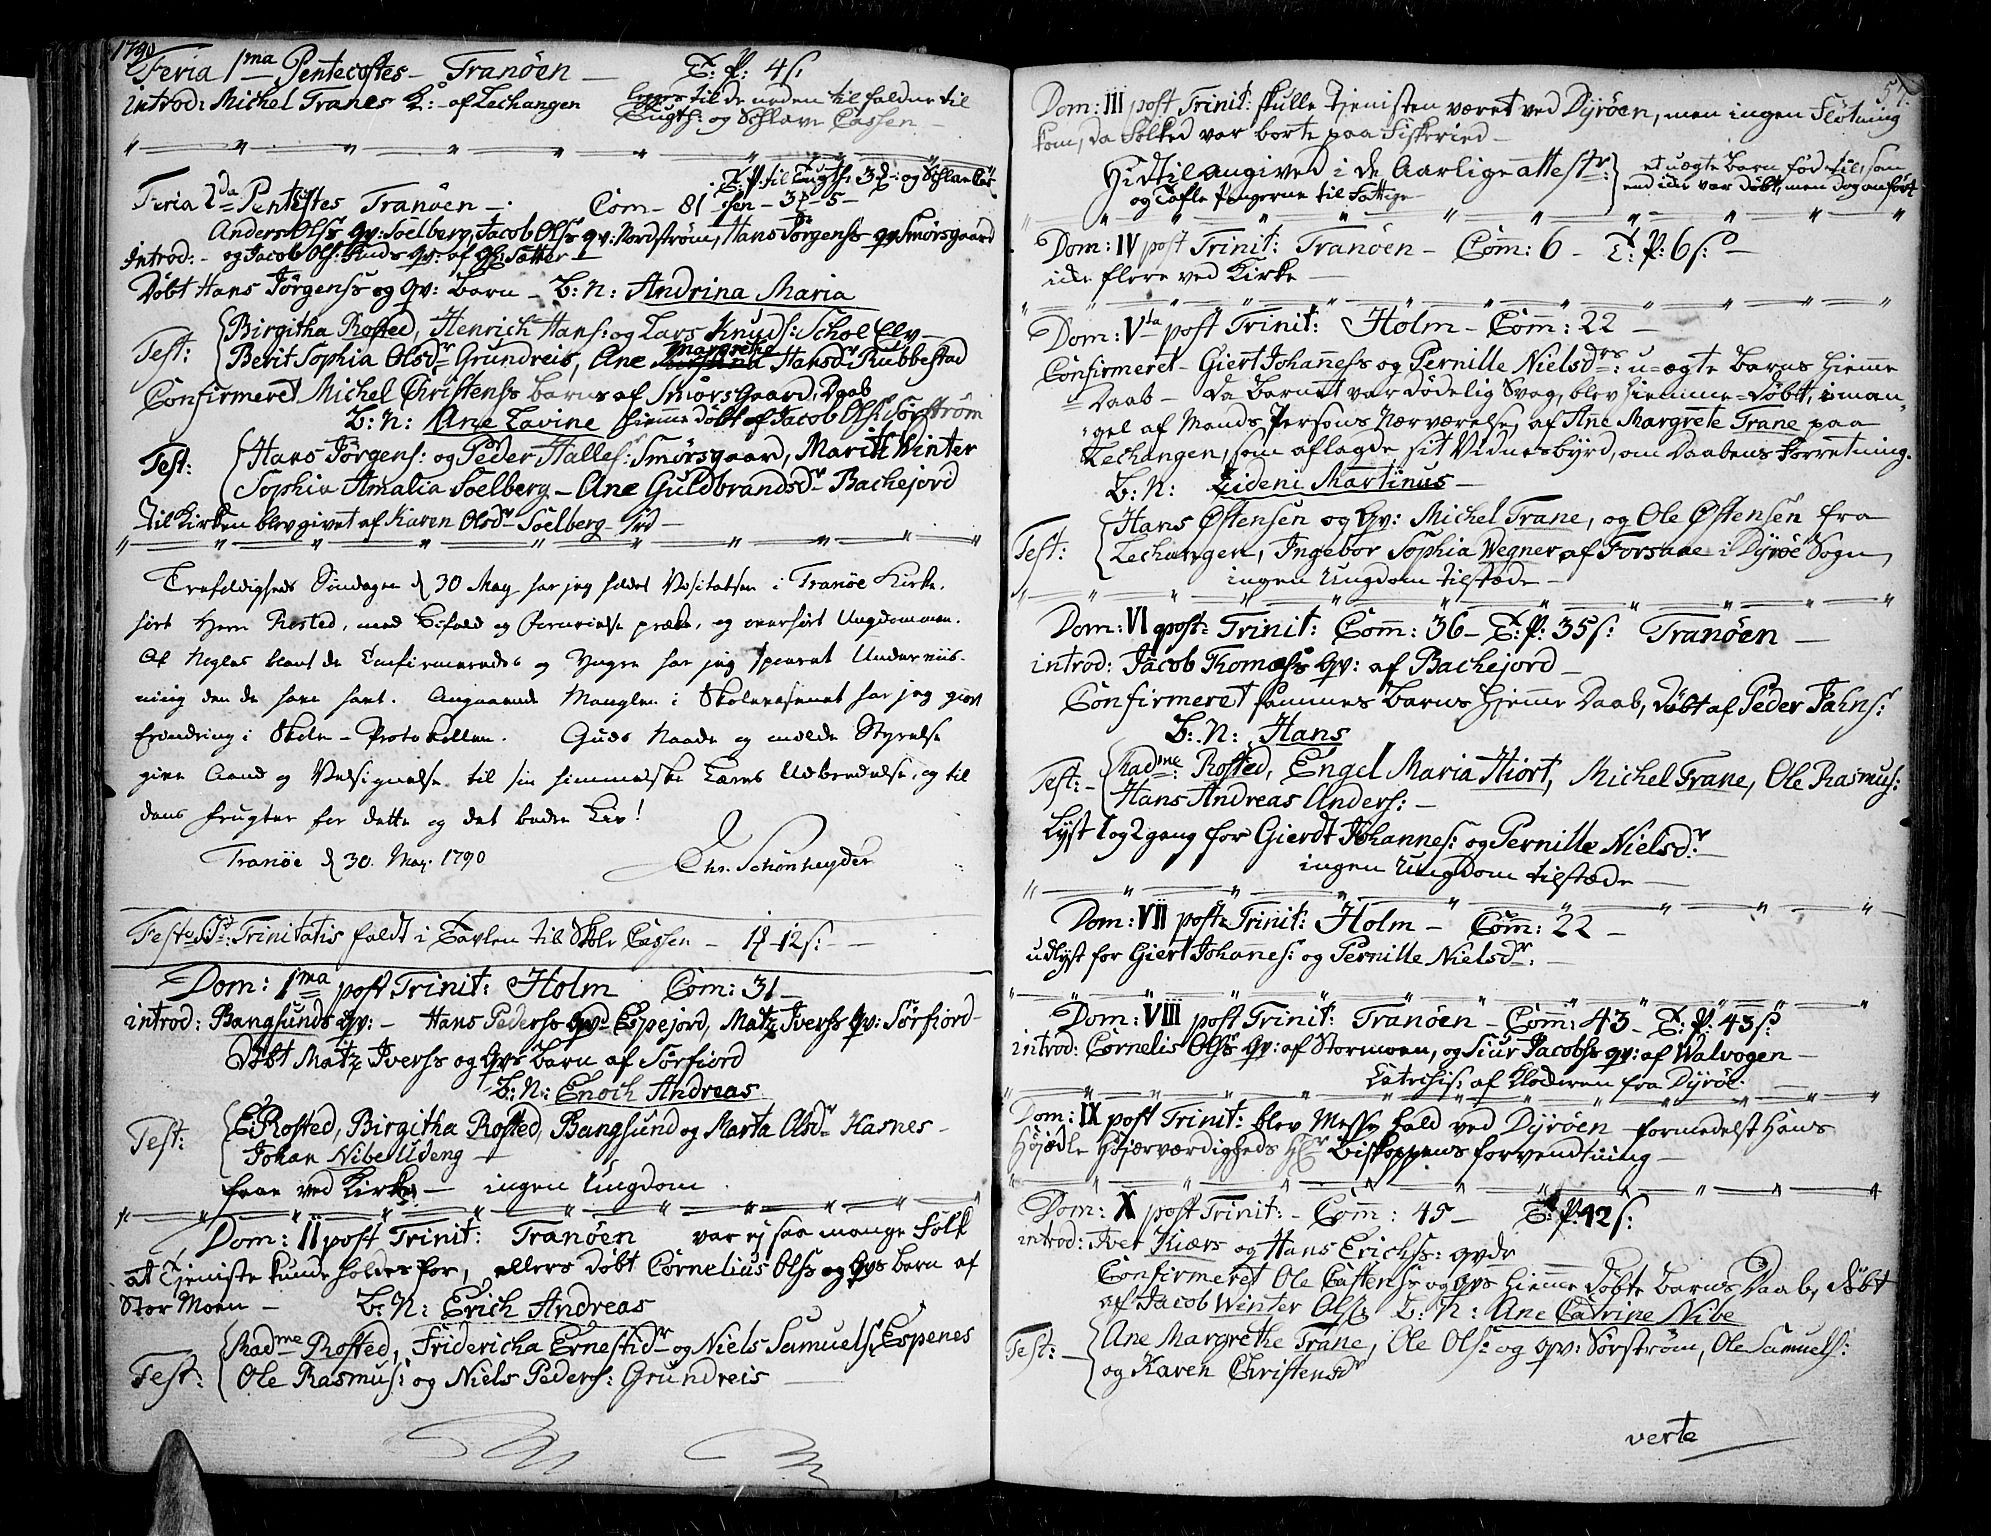 1790
Feria 1ma Pentecostes - Tranöen - T: P: 4 s:
introd: Michel Tranes K: - af Lechangen
til de neden til faldne til
Tugth: og Sclave Cassen -
T: P. til Tugth: 3 og Sclave Cas-
Feria 2da Pentestes Tranöen - Com - 81 sen - 3 - 5 -
Anders Olss qv: Soelberg, Jacob Olss qv: Nordstrøm, Hans Jörgenss qv Smörsgaard
Introd: - og Jacob Ols: Knuds qv: af Sætter
Döbt Hans Jörgenss og qv: barn - B: N: Andrina Maria
Test: Birgitha Rosted, Henrich Hans: og Lars Knuds: Schol Elv -
Berit Sophia Olsdr Grundreis, Ane Margretha Hansdr Rubbestad
Confirmeret Michel Christenss barns af Smörs Gaard, Daab
B: N: Ane Lavine hiemme döbt af Jacob Olss Sörström
Test: Hans Jörgens: og Peder Halles: Smörsgaard, Marith Winter
Sophia Amalia Soelberg - Ane Guldbrandsdr Bachejord
til Kirken blev givet af Karen Olsdr Soelberg -
Trefoldigheds Söndagen d 30 May har jeg holdet Visitatsen i Tranöe Kirke,
hört Herr Rosted, med Bifald og præke, og overhört Ungdommen.
Af Nogles blant de Confirmerede og Yngre har jeg spearet Underviis-
ning den de have havt. Angaaende Manglen i Skolevesenet har jeg giort
Erindring i Skole - Protokollen. Guds Naade og milde Styrelse
give Aand og Velsignelse til sin himmelske Læres Udbredelse, og til
dens frugter for dette og det bedre Liv!
Tranöe d 30. May. 1790 Chr. Schönheyder
Festo SS: Trinitatis faldt i Tavlen til Skole Cassen - 1 - 12 s: -
Dom: 1ma post Trinit: Holm Com: 31 -
introd: Bangsunds qv: - Hans Pederss qv Espejord, Matz Iverss qv: Sörfiord -
Döbt Matz Iverss og qvs barn af Sörfiord
B: N: Enoch Andreas
Test: E Rosted, Birgitha Rosted, Bangsund og Marta Olsdr Kasnes -
Johan Nibe Udeng -
faae ved Kirke - ingen Ungdom
Dom: II post Trinit: Tranöen var ej saa mange Folk
at Tjeniste kunde holdes for, ellers döbt Cornelius Olss og qvs barn af
Stor Moen - B: N: Erich Andreas
Test: Madme Rosted, Fridericha Ernestidr og Niels Samuels: Espenes
Ole Rasmus: og Niels Peders: Grundreis -
57.
Dom: III post Trinit: skulle Tjenisten været ved Dyröen, men ingen Flötning
kom, da Folked var borte paa Fiskeried -
Hidtil angived i de Aarlige attestr: et uægte barn föd til, som
og Tafle Pengerne til Fattige end ikke var döbt, men dog anfört
Dom: IV post Trinit: Tranöen - Com: 6 - T: P: 6 s: -
ikke flere ved Kirke -
Dom: Vta post Trinit: Holm - Com: 22 -
Confirmeret - Giert Johaness og Pernille Nielsdrs: u=ægte barns hiemme
= Daab - da barnet var dödelig Svag, blev hiemme=döbt, i man-
gel af Mands Persons Nærværelse, af Ane Margrete Trane paa
Lechangen, som aflagde sit Vidnesbyrd, om Daabens Forretning.
B: N: Zideni Martinus -
Test: Hans Östensen og qv: Michel Trane, og Ole Östensen fra
Lechangen, Ingebor Sophia Wegner af Forsaae i Dyröe Sogn,
ingen Ungdom tilstæde -
Dom: VI post: Trinit: Com: 36 - T: P: 35 s: Tranöen -
introd: Jacob Thomæss qv: af Bachejord -
Confirmeret sammes barns hjemme Daab, döbt af Peder Jahns:
B: N: Hans
Test: - Madme: Rosted, Engel Maria Hiort, Michel Trane, Ole Rasmus:
Hans Andreas Anders: -
Lyst 1 og 2 gang for Gierdt Johannes: og Pernille Nielsdr: -
ingen Ungdom tilstæde -
Dom: VII post Trinit: Holm - Com: 22 -
udlyst for Giert Johanes: og Pernille Nielsdr: -
Dom: VIII post Trinit: Tranöen - Com: 43 - T: P: 43 s:
introd: Cornelis Olss qv: af Stormoen, og Siur Jacobss qv: af Walvogen -
Catechis: af Kloderen fra Dyröe. -
Dom: IX post Trinit: blev Messe fald ved Dyröen formedelst Hans
Höjædle Höjærværdigheds Hr Biskoppens forvendtning -
Dom: X post Trinit: - Com: 45 - T: P: 42 s:
introd: Iver Kiærs og Hans Erichss: qvdr
Confirmeret Ole Castenss og qvs hiemme döbte barns Daab, döbt
af Jacob Winter Olss B: N: Ane Catrine Nibe
Test: - Ane Margrethe Trane, Ole Ols: og qv: Sörström, Ole Samuels:
og Karen Christensdr
verte